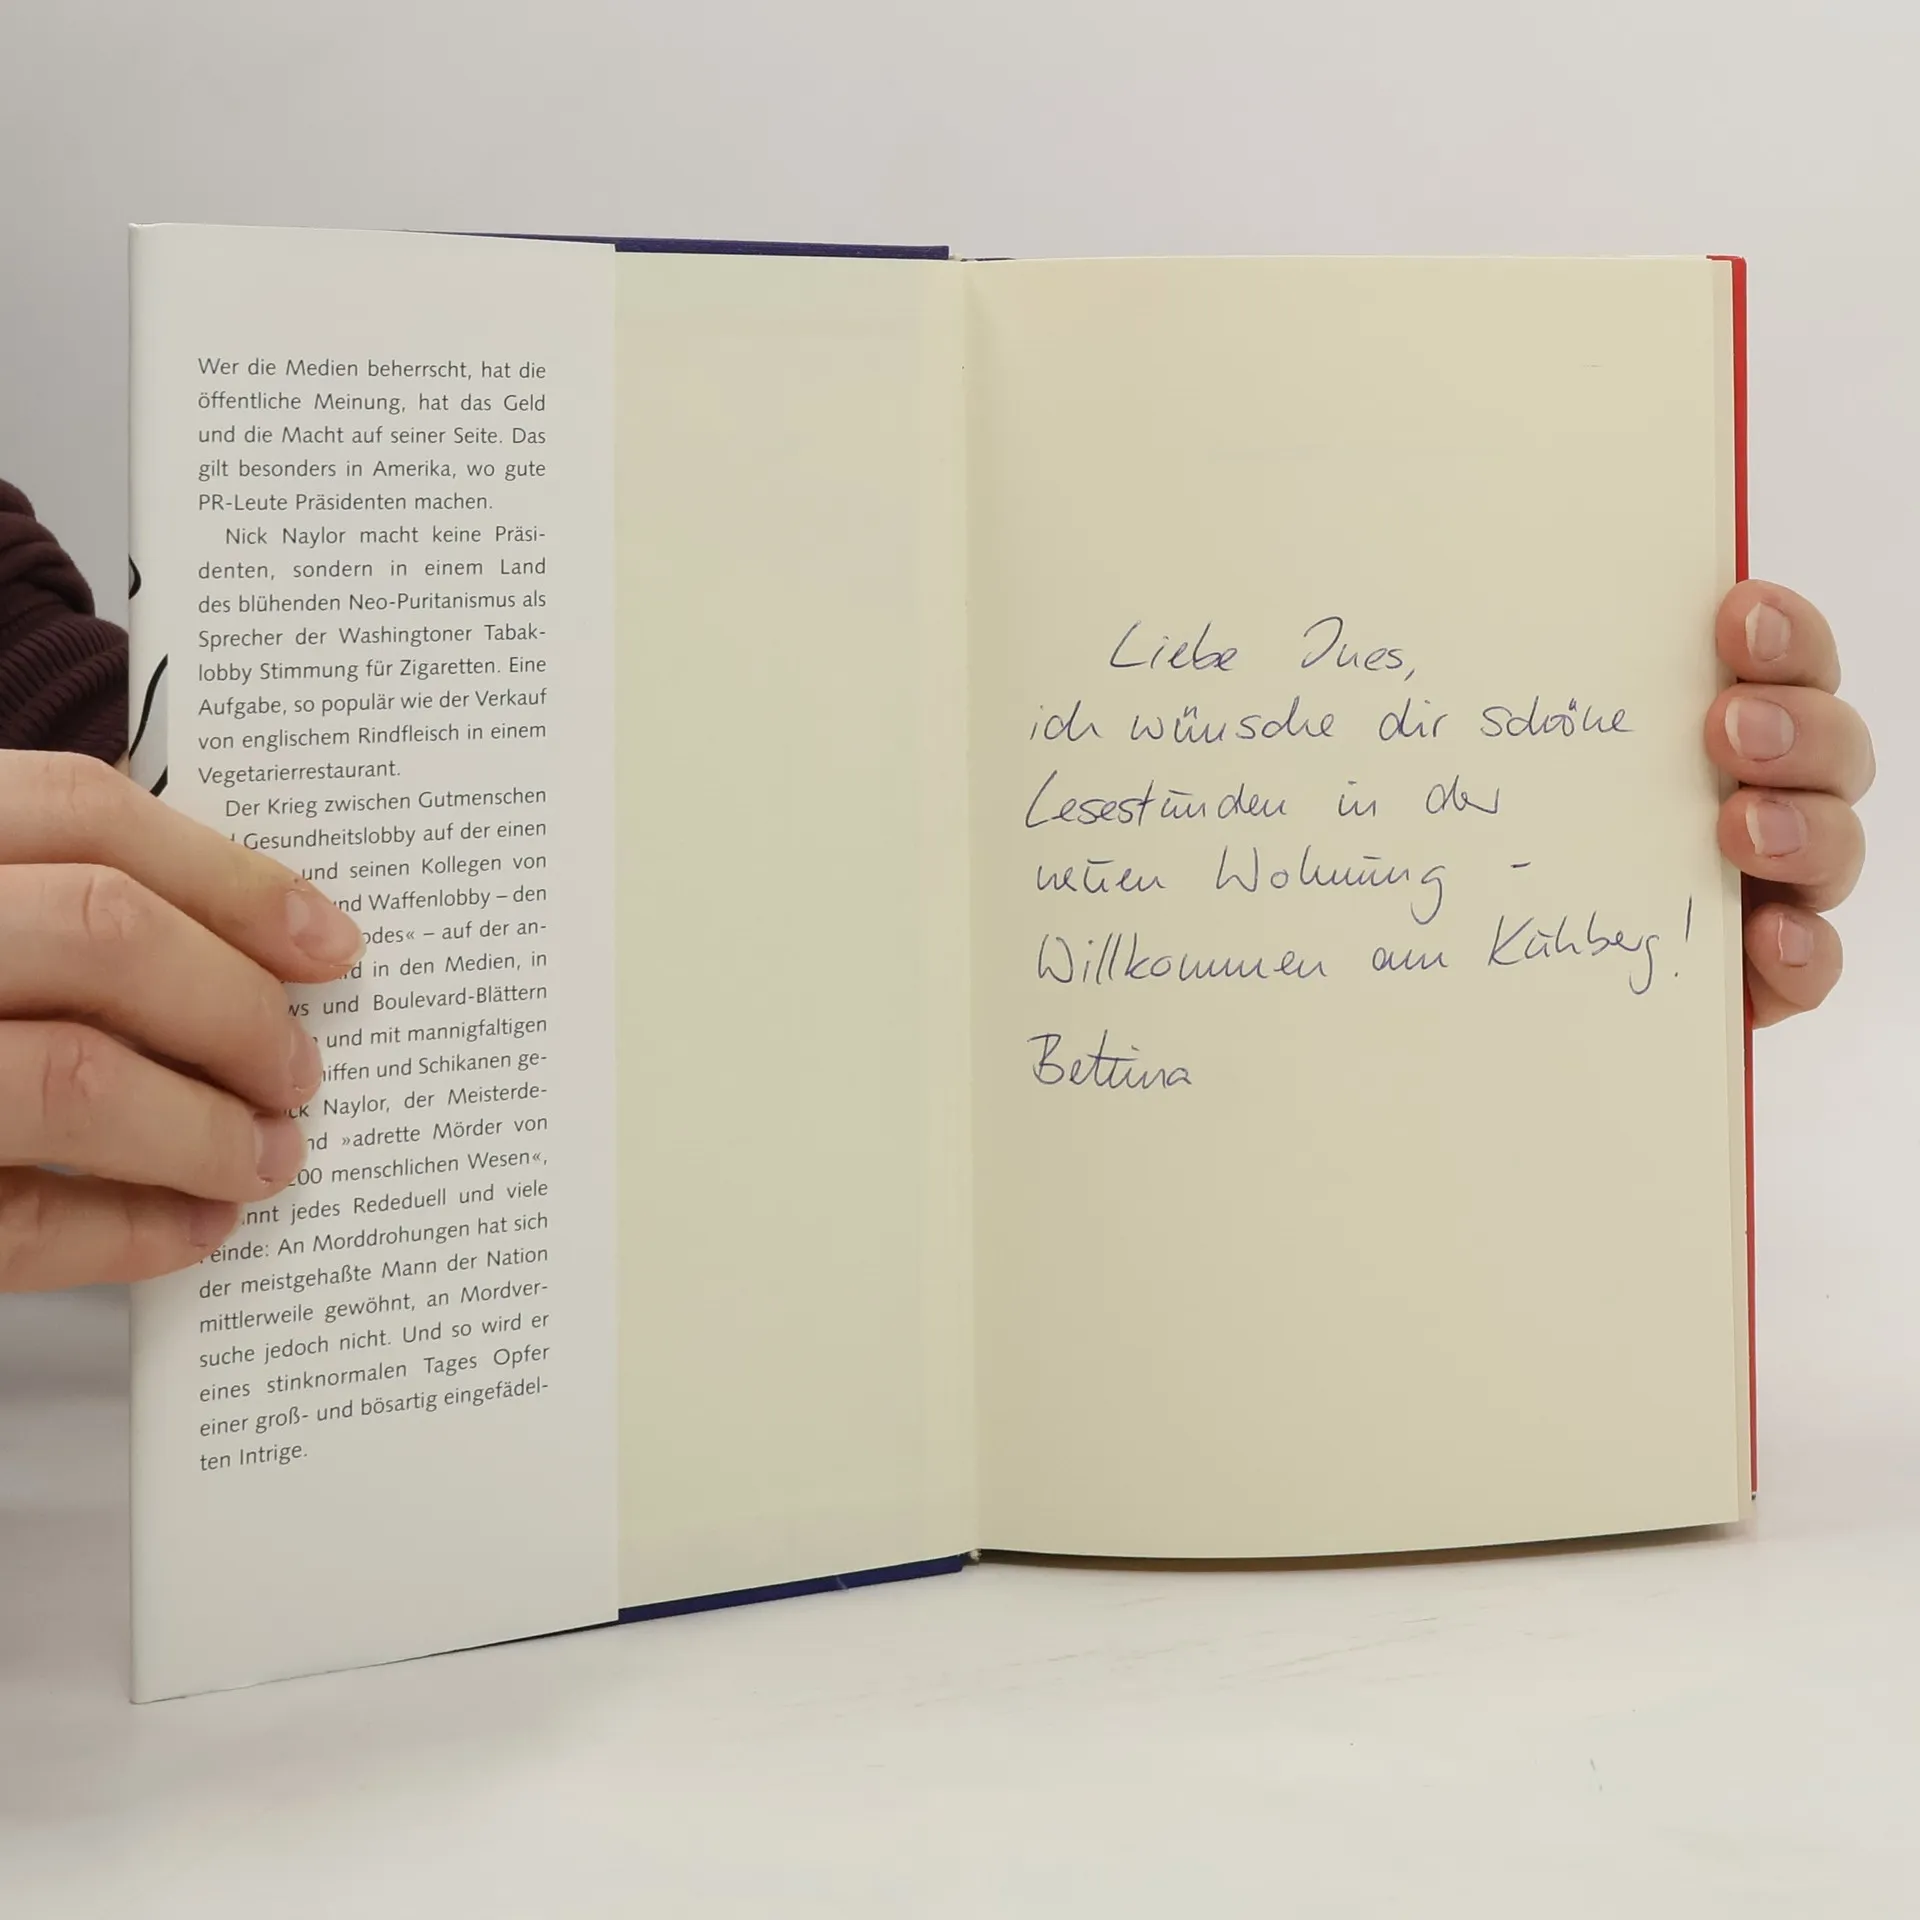 Wer die Medien beherrscht, hat die
öffentliche Meinung, hat das Geld
und die Macht auf seiner Seite. Das
gilt besonders in Amerika, wo gute
PR-Leute Präsidenten machen.
Nick Naylor macht keine Präsi-
denten, sondern in einem Land
des blühenden Neo-Puritanismus als
Sprecher der Washingtoner Tabak-
lobby Stimmung für Zigaretten. Eine
Aufgabe, so populär wie der Verkauf
von englischem Rindfleisch in einem
Vegetarierrestaurant.
Der Krieg zwischen Gutmenschen
Gesundheitslobby auf der einen
und seinen Kollegen von
Waffenlobby – den
– auf der an-
in den Medien, in
und Boulevard-Blättern
und mit mannigfaltigen
und Schikanen ge-
Naylor, der Meisterde-
»adrette Mörder von
menschlichen Wesen«,
jedes Rededuell und viele
An Morddrohungen hat sich
der meistgehaßte Mann der Nation
mittlerweile gewöhnt, an Mordver-
suche jedoch nicht. Und so wird er
eines stinknormalen Tages Opfer
einer groß- und bösartig eingefädel-
ten Intrige.
Liebe Ines,
ich wünsche dir schöne
Lesestunden in der
neuen Wohnung -
Willkommen am Kühberg!
Bettina